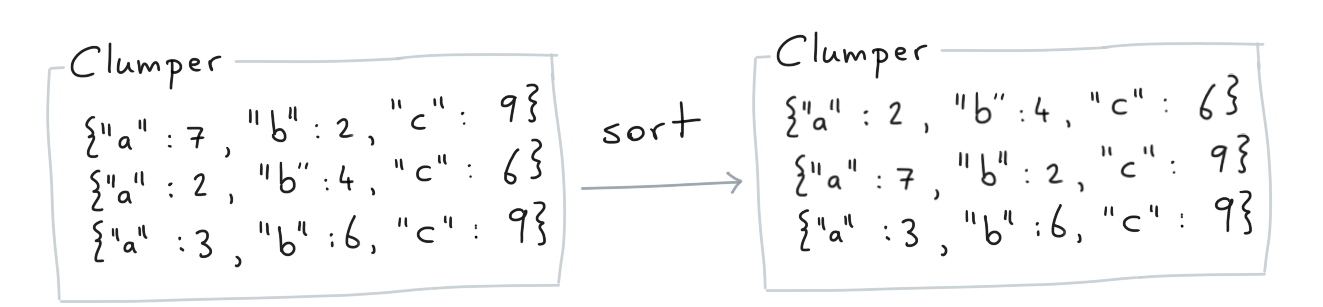 Clumper
{"a" : 7, "b" : 2, "c" : 9}
{"a" : 2, "b" : 4, "c" : 6}
{"a" : 3, "b" : 6, "c" : 9}
sort
Clumper
{"a" : 2, "b" : 4, "c" : 6}
{"a" : 7, "b" : 2, "c" : 9}
{"a" : 3, "b" : 6, "c" : 9}